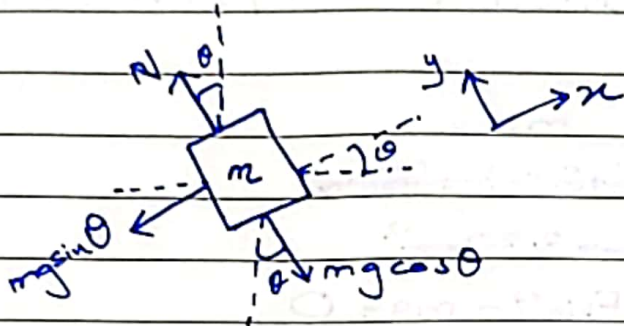 θ
N
y
x
m
θ
mg sinθ
θ
mg cosθ